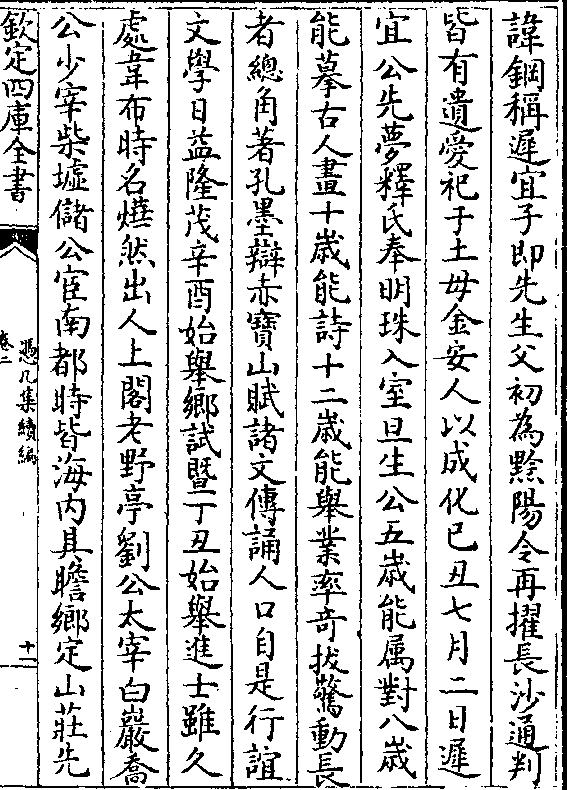 諱鋼稱遲宜子即先生父初為黟陽令再擢長沙通判
皆有遺愛祀于土母金安人以成化己丑七月二日遲
宜公先夢釋氏奉明珠入室旦生公五歲能属對八歲
能摹古人畫十歲能詩十二歲能舉業率竒拔驚動長
者總角著孔墨辯赤寶山賦諸文傳誦人口自是行誼
文學日益隆茂辛酉始舉鄉試暨丁丑始舉進士雖久
處韋布時名爗然出人上閣老野亭劉公太宰白巖喬
公少宰柴墟儲公宦南都時皆海内具瞻鄉定山莊先
欽定四庫全書
憑几集續編
卷二
十一